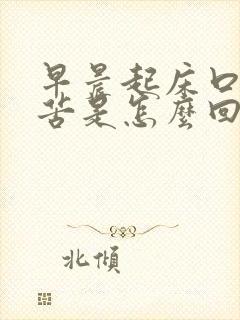 早晨起床口
苦是怎麼回
北傾